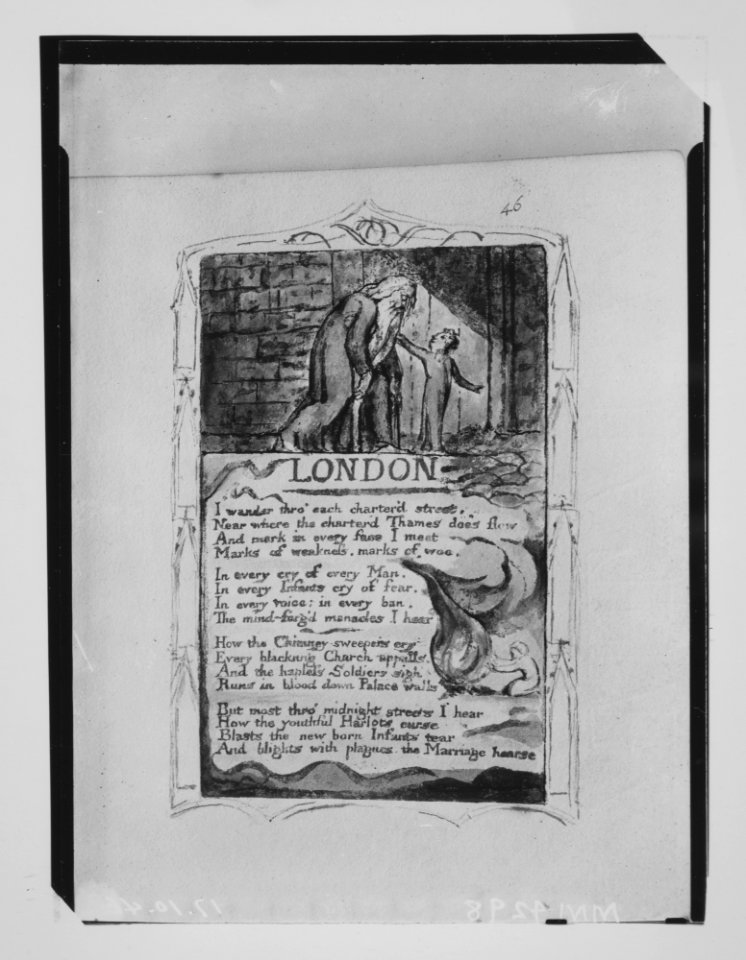 46
LONDON
I wander thro' each charter'd street,
Near where the charter'd Thames does flow
And mark in every face I meet
Marks of weakness, marks of woe.
In every cry of every Man,
In every Infants cry of fear,
In every voice; in every ban,
The mind-forg'd manacles I hear
How the Chimney-sweepers cry
Every blackning Church appalls,
And the hapless Soldiers sigh
Runs in blood down Palace walls
But most thro' midnight streets I hear
How the youthful Harlots curse
Blasts the new born Infants tear
And blights with plagues the Marriage hearse
MM 9298